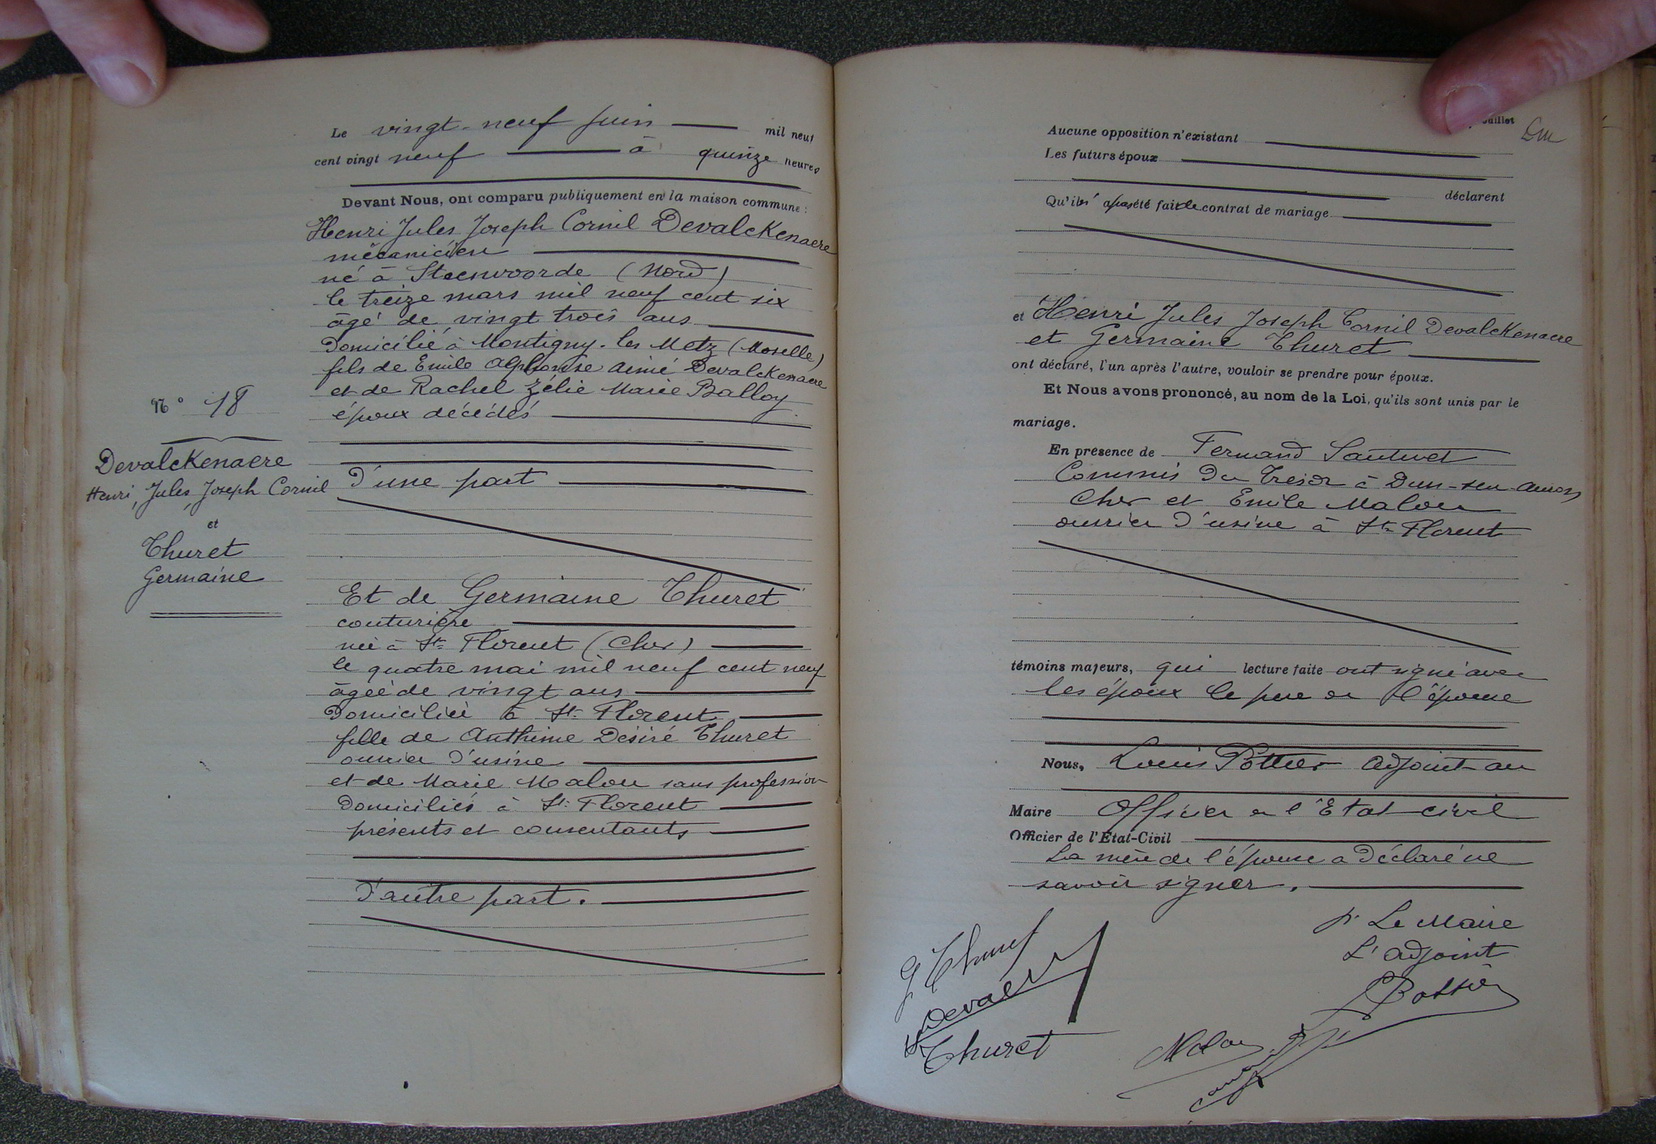 Le vingt-neuf juin mil neuf
cent vingt neuf à quinze heures
Devant Nous, ont comparu publiquement en la maison commune :
Henri Jules Joseph Cornil Devalckenaere
mécanicien
né à Steenvoorde (Nord)
le treize mars mil neuf cent six
âgé de vingt trois ans
domicilié à Montigny-les Metz (Moselle)
fils de Emile Alphonse Aimé Devalckenaere
et de Rachel Zélie Marie Balloy
époux décédés
N° 18
Devalckenaere
Henri, Jules, Joseph Cornil
et
Thuret
Germaine
d'une part
Et de Germaine Thuret
couturière
née à St Florent (Cher)
le quatre mai mil neuf cent neuf
âgée de vingt ans
domiciliée à St Florent
fille de Anthime Désiré Thuret
ouvrier d'usine
et de Marie Malou sans profession
domiciliés à St Florent
présents et consentants
d'autre part.
feuillet
Aucune opposition n'existant
Les futurs époux
déclarent
Qu'il n'a pas été fait de contrat de mariage
et Henri Jules Joseph Cornil Devalckenaere
et Germaine Thuret
ont déclaré, l'un après l'autre, vouloir se prendre pour époux.
Et Nous avons prononcé, au nom de la Loi, qu'ils sont unis par le
mariage.
En présence de Fernand
Commis du Trésor à Dun-sur-Auron
Cher et Emile Malou
ouvrier d'usine à St Florent
témoins majeurs, qui lecture faite ont signé avec
les époux le père de l'épouse
Nous, Louis Pottier adjoint au
Maire Officier de l'Etat-civil
Officier de l'État-Civil
La mère de l'épouse a déclaré ne
savoir signer.
G Thuret
Thuret
pr Le Maire
L'adjoint
LPottier
Malou